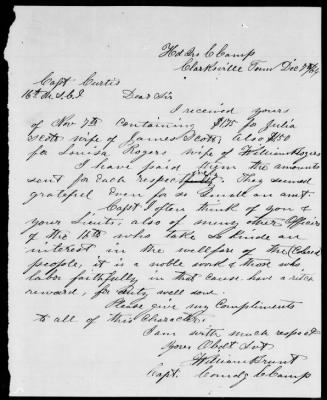 Hd Qrs C Camp
Clarksville Tenn Dec 8th/64
Capt Curtis
16th U.S.C.I. Dear Sir
I received yours
of Nov 7th containing $175 for Julia
Scott wife of James Scott, also $150
for Louisa Rogers wife of William Rogers
I have paid them the amounts
sent for each They seemed
grateful even for so small a amt.
Capt I often think of you &
your Lieuts, also of many other Officers
of the 16th who take so kind an
interest in the wellfare of the Colored
people, it is a noble work & those who
labor faithfully in that cause have a rich
reward, for duty well done.
Please give my Compliments
to all of this Character.
I am with much respect
Yours Obdt Svt
William Brunt
Capt. Comdg C Camp